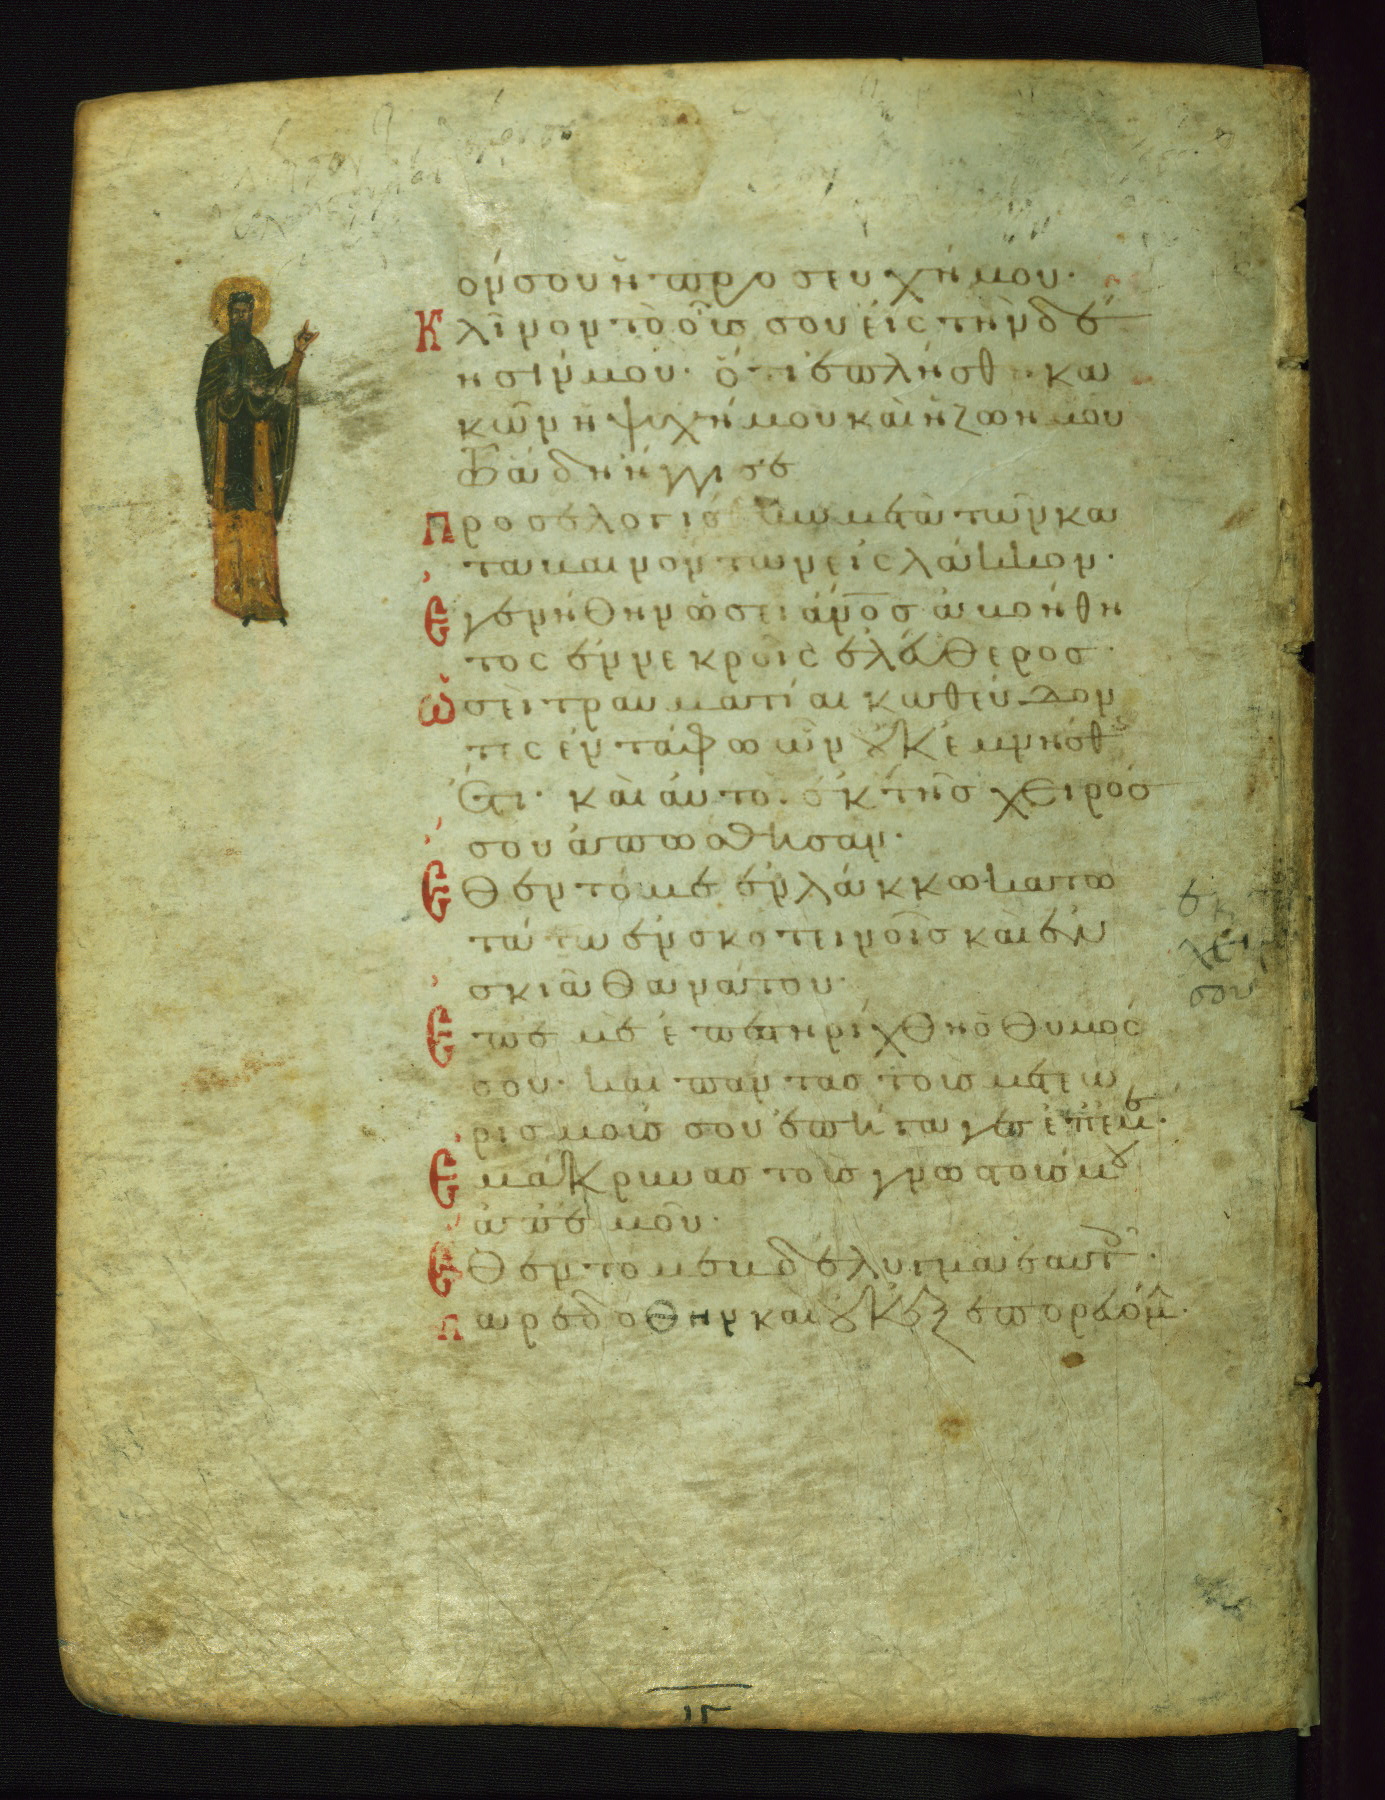 όν σου ἡ προσευχή μου·
Κλῖνον τὸ οὖς σου εἰς τὴν δέ
ησίν μου· ὅτι ἐπλήσθη κα
κῶν ἡ ψυχή μου καὶ ἡ ζωή μου
τῶ ἅδη ἤγγισε
Προσελογίσθην μετὰ τῶν κα
ταβαινόντων εἰς λάκκον·
Ἐγενήθην ὡσεὶ ἄνος ἀβοήθη
τος ἐν νεκροῖς ἐλεύθερος·
Ὡσεὶ τραυματίαι καθεύδον
τες ἐν τάφω ὧν οὐκ ἐμνήσθης
ἔτι· καὶ αὐτοὶ ἐκ τῆς χειρός
σου ἀπώσθησαν·
Ἔθεντό με ἐν λάκκω κατω
τάτω ἐν σκοτεινοῖς καὶ ἐν
σκιᾶ θανάτου·
Ἐπ' ἐμὲ ἐπεστηρίχθη ὁ θυμός
σου· καὶ πάντας τοὺς μετεω
ρισμούς σου ἐπήγαγες ἐπ' ἐμέ·
Ἐμάκρυνας τοὺς γνωστούς μου
ἀπ' ἐμοῦ·
Ἔθεντό με βδέλυγμα ἑαυτοῖς·
Παρεδόθην καὶ οὐκ ἐξεπορευόμην·
σου